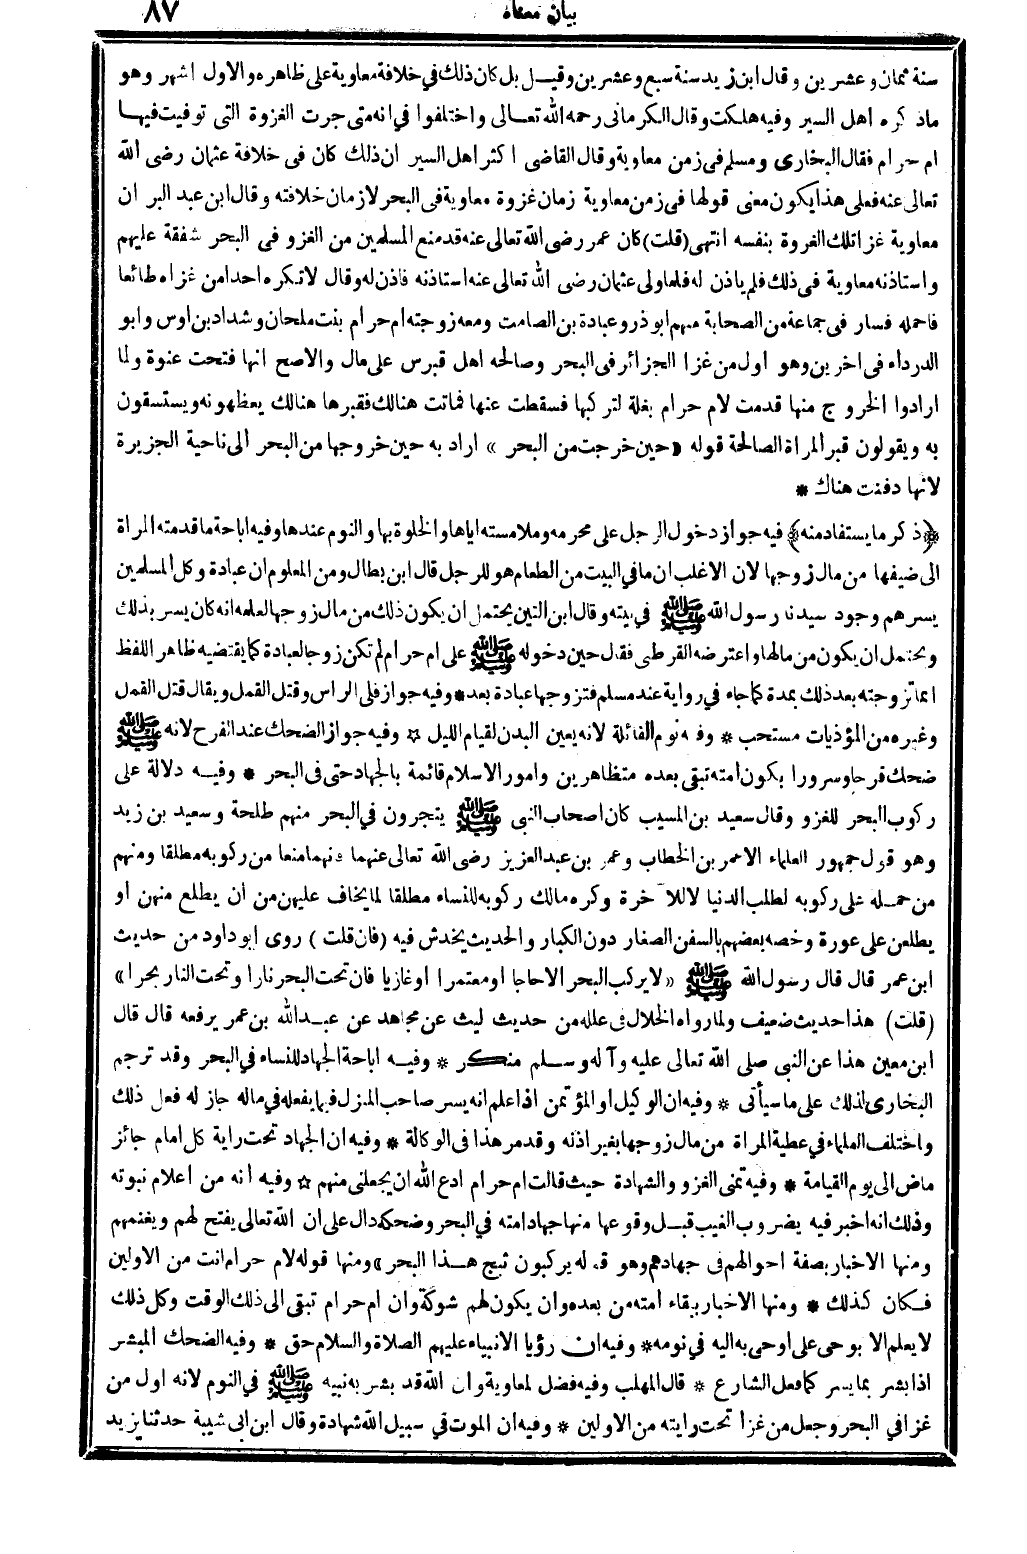 بيان معناه ٨٧
سنة ثمان وعشرين وقال ابن زيد سنة سبع وعشرين وقيل بل كان ذلك في خلافة معاوية على ظاهره والاول اشهر وهو
ماذكره اهل السير وفيه هلكت وقال الكرمانى رحمه الله تعالى واختلفوا في انه متى جرت الغزوة التى توفيت فيها
ام حرام فقال البخارى ومسلم فى زمن معاوية وقال القاضى اكثر اهل السير ان ذلك كان فى خلافة عثمان رضى الله
تعالى عنه فعلى هذا يكون معنى قولها فى زمن معاوية زمان غزوة معاوية فى البحر لا زمان خلافته وقال ابن عبد البر ان
معاوية غزا تلك الغزوة بنفسه انتهى (قلت) كان عمر رضى الله تعالى عنه قد منع المسلمين من الغزو فى البحر شفقة عليهم
واستاذنه معاوية فى ذلك فلم ياذن له فلما ولى عثمان رضى الله تعالى عنه استاذنه فاذن له وقال لا تكره احدا من غزاه طائعا
فاحمله فسار فى جماعة من الصحابة منهم ابو ذر وعبادة بن الصامت ومعه زوجته ام حرام بنت ملحان وشداد بن اوس وابو
الدرداء فى اخرين وهو اول من غزا الجزائر فى البحر وصالحه اهل قبرس على مال والاصح انها فتحت عنوة ولما
ارادوا الخروج منها قدمت لام حرام بغلة لتركبها فسقطت عنها فماتت هنالك فقبرها هنالك يعظمونه ويستسقون
به ويقولون قبر المراة الصالحة قوله «حين خرجت من البحر» اراد به حين خروجها من البحر الى ناحية الجزيرة
لانها دفنت هناك *
﴿ذكر ما يستفاد منه﴾ فيه جواز دخول الرجل على محرمه وملامسته اياها والخلوة بها والنوم عندها وفيه اباحة ما قدمته المراة
الى ضيفها من مال زوجها لان الاغلب ان ما في البيت من الطعام هو للرجل قال ابن بطال ومن المعلوم ان عبادة وكل المسلمين
يسرهم وجود سيدنا رسول الله ﷺ في بيته وقال ابن التين يحتمل ان يكون ذلك من مال زوجها لعلمه انه كان يسر بذلك
ويحتمل ان يكون من مالها واعترضه القرطبى فقال حين دخوله ﷺ على ام حرام لم تكن زوجا لعبادة كما يقتضيه ظاهر اللفظ
انما تزوجته بعد ذلك بمدة كما جاء في رواية عند مسلم فتزوجها عبادة بعد * وفيه جواز فلى الراس وقتل القمل ويقال قتل القمل
وغيره من المؤذيات مستحب * وفيه نوم القائلة لانه يعين البدن لقيام الليل ☆ وفيه جواز الضحك عند الفرح لانه ﷺ
ضحك فرحا وسرورا بكون امته تبقى بعده متظاهرين وامور الاسلام قائمة بالجهاد حتى فى البحر * وفيه دلالة على
ركوب البحر للغزو وقال سعيد بن المسيب كان اصحاب النبى ﷺ يتجرون في البحر منهم طلحة وسعيد بن زيد
وهو قول جمهور العلماء الا عمر بن الخطاب وعمر بن عبد العزيز رضى الله تعالى عنهما فانهما منعا من ركوبه مطلقا ومنهم
من حمله على ركوبه لطلب الدنيا لا للآخرة وكره مالك ركوبه للنساء مطلقا لما يخاف عليهن من ان يطلع منهن او
يطلعن على عورة وخصه بعضهم بالسفن الصغار دون الكبار والحديث يخدش فيه (فان قلت) روى ابو داود من حديث
ابن عمر قال قال رسول الله ﷺ «لا يركب البحر الا حاجا او معتمرا او غازيا فان تحت البحر نارا وتحت النار بحرا»
(قلت) هذا حديث ضعيف ولما رواه الخلال فى علله من حديث ليث عن مجاهد عن عبد الله بن عمر يرفعه قال قال
ابن معين هذا عن النبى صلى الله تعالى عليه وآله وسلم منكر * وفيه اباحة الجهاد للنساء في البحر وقد ترجم
البخارى لذلك على ما سيأتى * وفيه ان الوكيل او المؤتمن اذا علم انه يسر صاحب المنزل فيما يفعله في ماله جاز له فعل ذلك
واختلف العلماء في عطية المراة من مال زوجها بغير اذنه وقد مر هذا فى الوكالة * وفيه ان الجهاد تحت راية كل امام جائز
ماض الى يوم القيامة * وفيه تمنى الغزو والشهادة حيث قالت ام حرام ادع الله ان يجعلنى منهم ☆ وفيه انه من اعلام نبوته
وذلك انه اخبر فيه بضروب الغيب قبل وقوعها منها جهاد امته في البحر وضحكه دال على ان الله تعالى يفتح لهم ويغنمهم
ومنها الاخبار بصفة احوالهم فى جهادهم وهو قوله يركبون ثبج هذا البحر» ومنها قوله لام حرام انت من الاولين
فكان كذلك * ومنها الاخبار ببقاء امته من بعده وان يكون لهم شوكة وان ام حرام تبقى الى ذلك الوقت وكل ذلك
لا يعلم الا بوحى على اوحى به اليه في نومه* وفيه ان رؤيا الانبياء عليهم الصلاة والسلام حق * وفيه الضحك المبشر
اذا بشر بما يسر كما فعل الشارع * قال المهلب وفيه فضل لمعاوية وان الله قد بشر به نبيه ﷺ في النوم لانه اول من
غزا في البحر وجعل من غزا تحت رايته من الاولين * وفيه ان الموت في سبيل الله شهادة وقال ابن ابى شيبة حدثنا يزيد